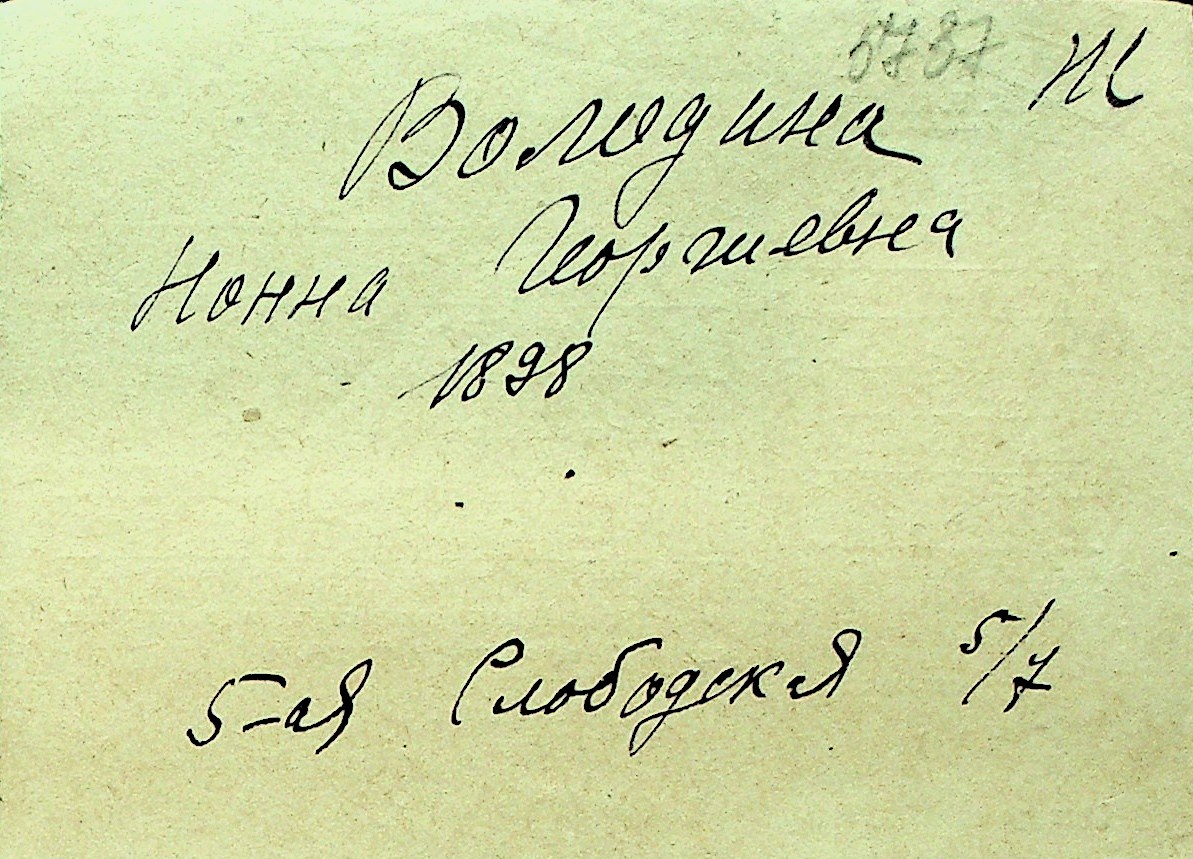 5787 Ж
Володина
Нонна Георгиевна
1898
5-ая Слободская 5/7